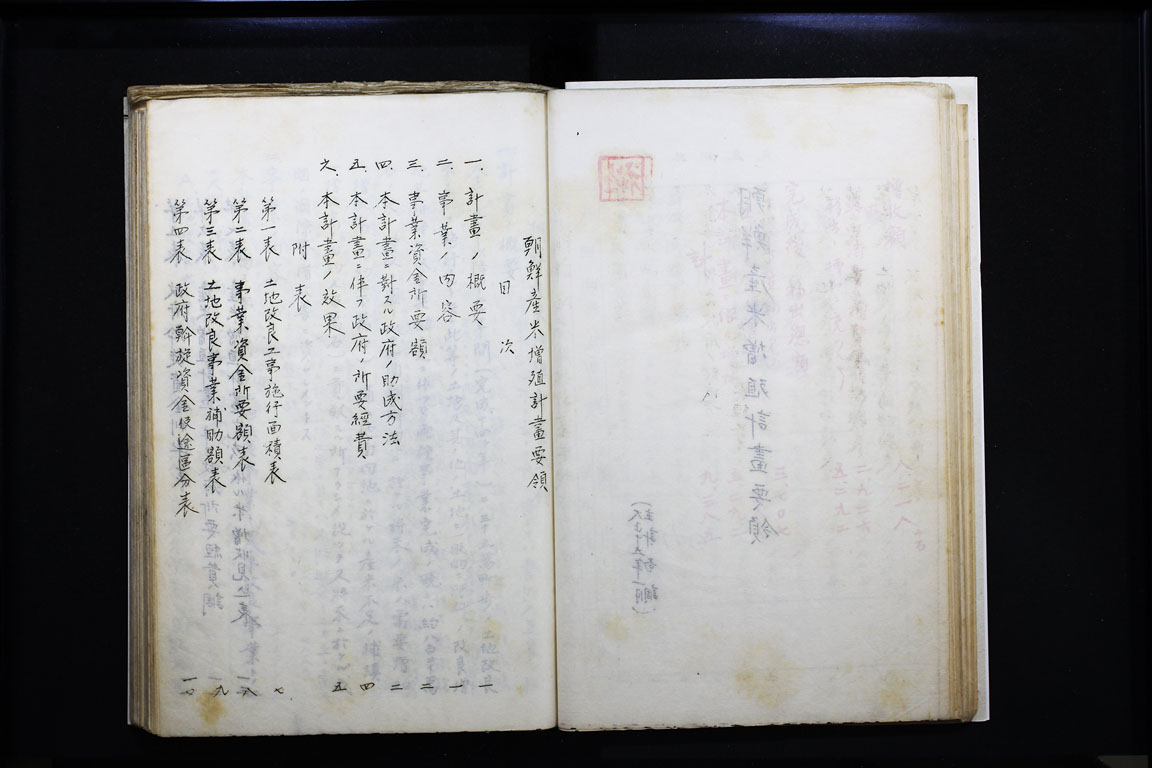 朝鮮産米増殖計畫要領
目次
一、計畫ノ概要 一
二、事業ノ内容 一
三、事業資金所要額 二
四、本計畫ニ對スル政府ノ助成方法 二
五、本計畫ニ伴フ政府ノ所要經費 四
六、本計畫ノ效果 五
附表
第一表 土地改良工事施行面積表 七
第二表 事業資金所要額表
第三表 土地改良事業補助額表
第四表 政府斡旋資金使途區分表